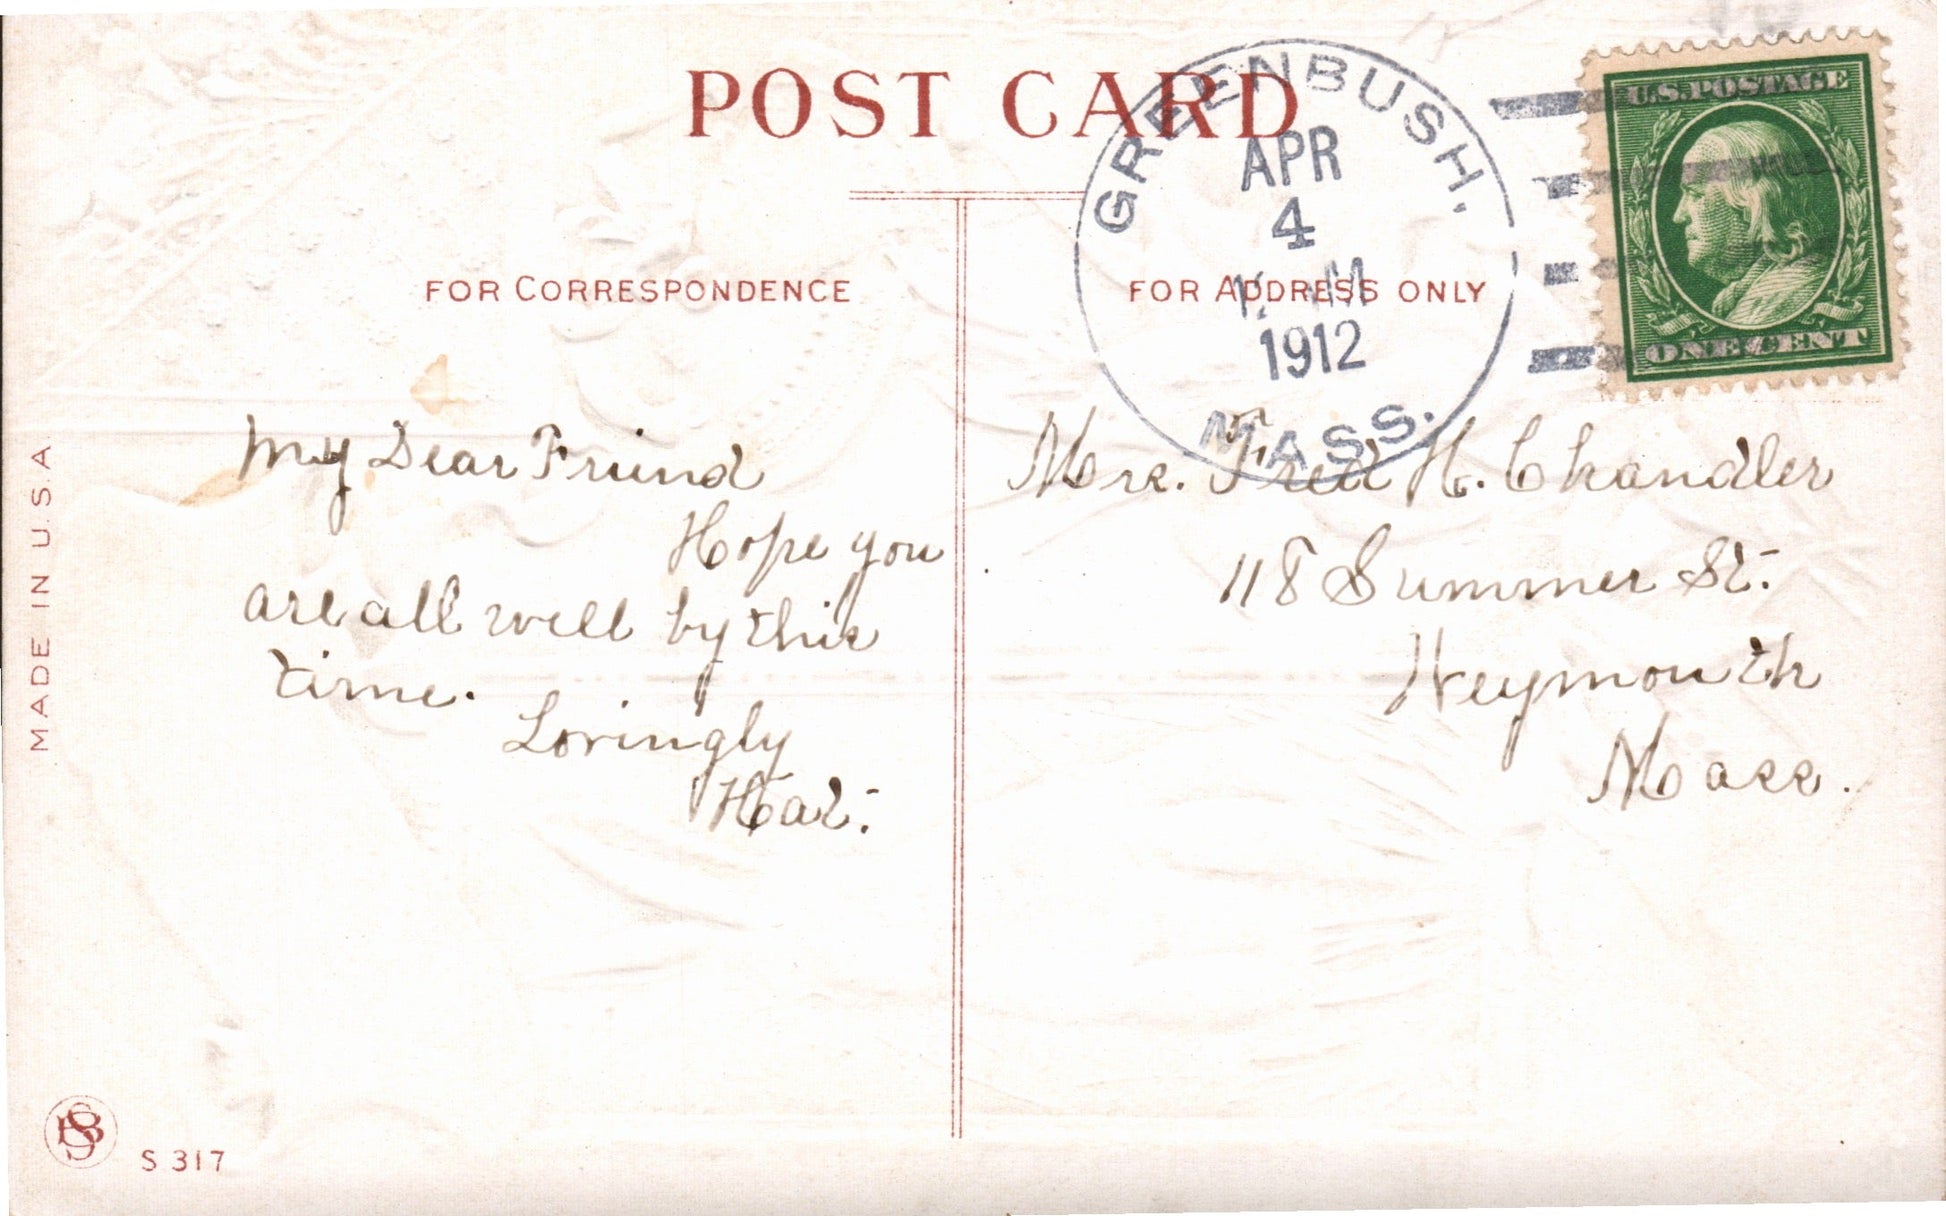 POST CARD
GREENBUSH,
APR
4
M
1912
MASS.
U.S.POSTAGE
ONE CENT
FOR CORRESPONDENCE
FOR ADDRESS ONLY
My Dear Friend
Hope you
are all well by this
time.
Lovingly
Hat.
Mrs. Fred H. Chandler
118 Summer St.
Weymouth
Mass.
MADE IN U.S.A
S 317